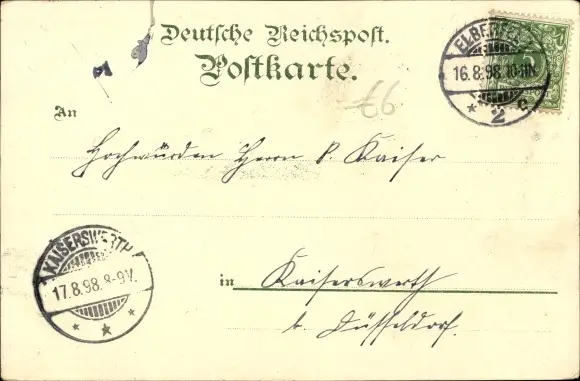 Deutsche Reichspost.
Postkarte.
ELBERFELD
16.8.98.10-11N.
* 2 c
€6
An
Hochwürden Herrn P. Kaiser
KAISERSWERTH
17.8.98.8-9V.
in Kaiserswerth
b. Düsseldorf.